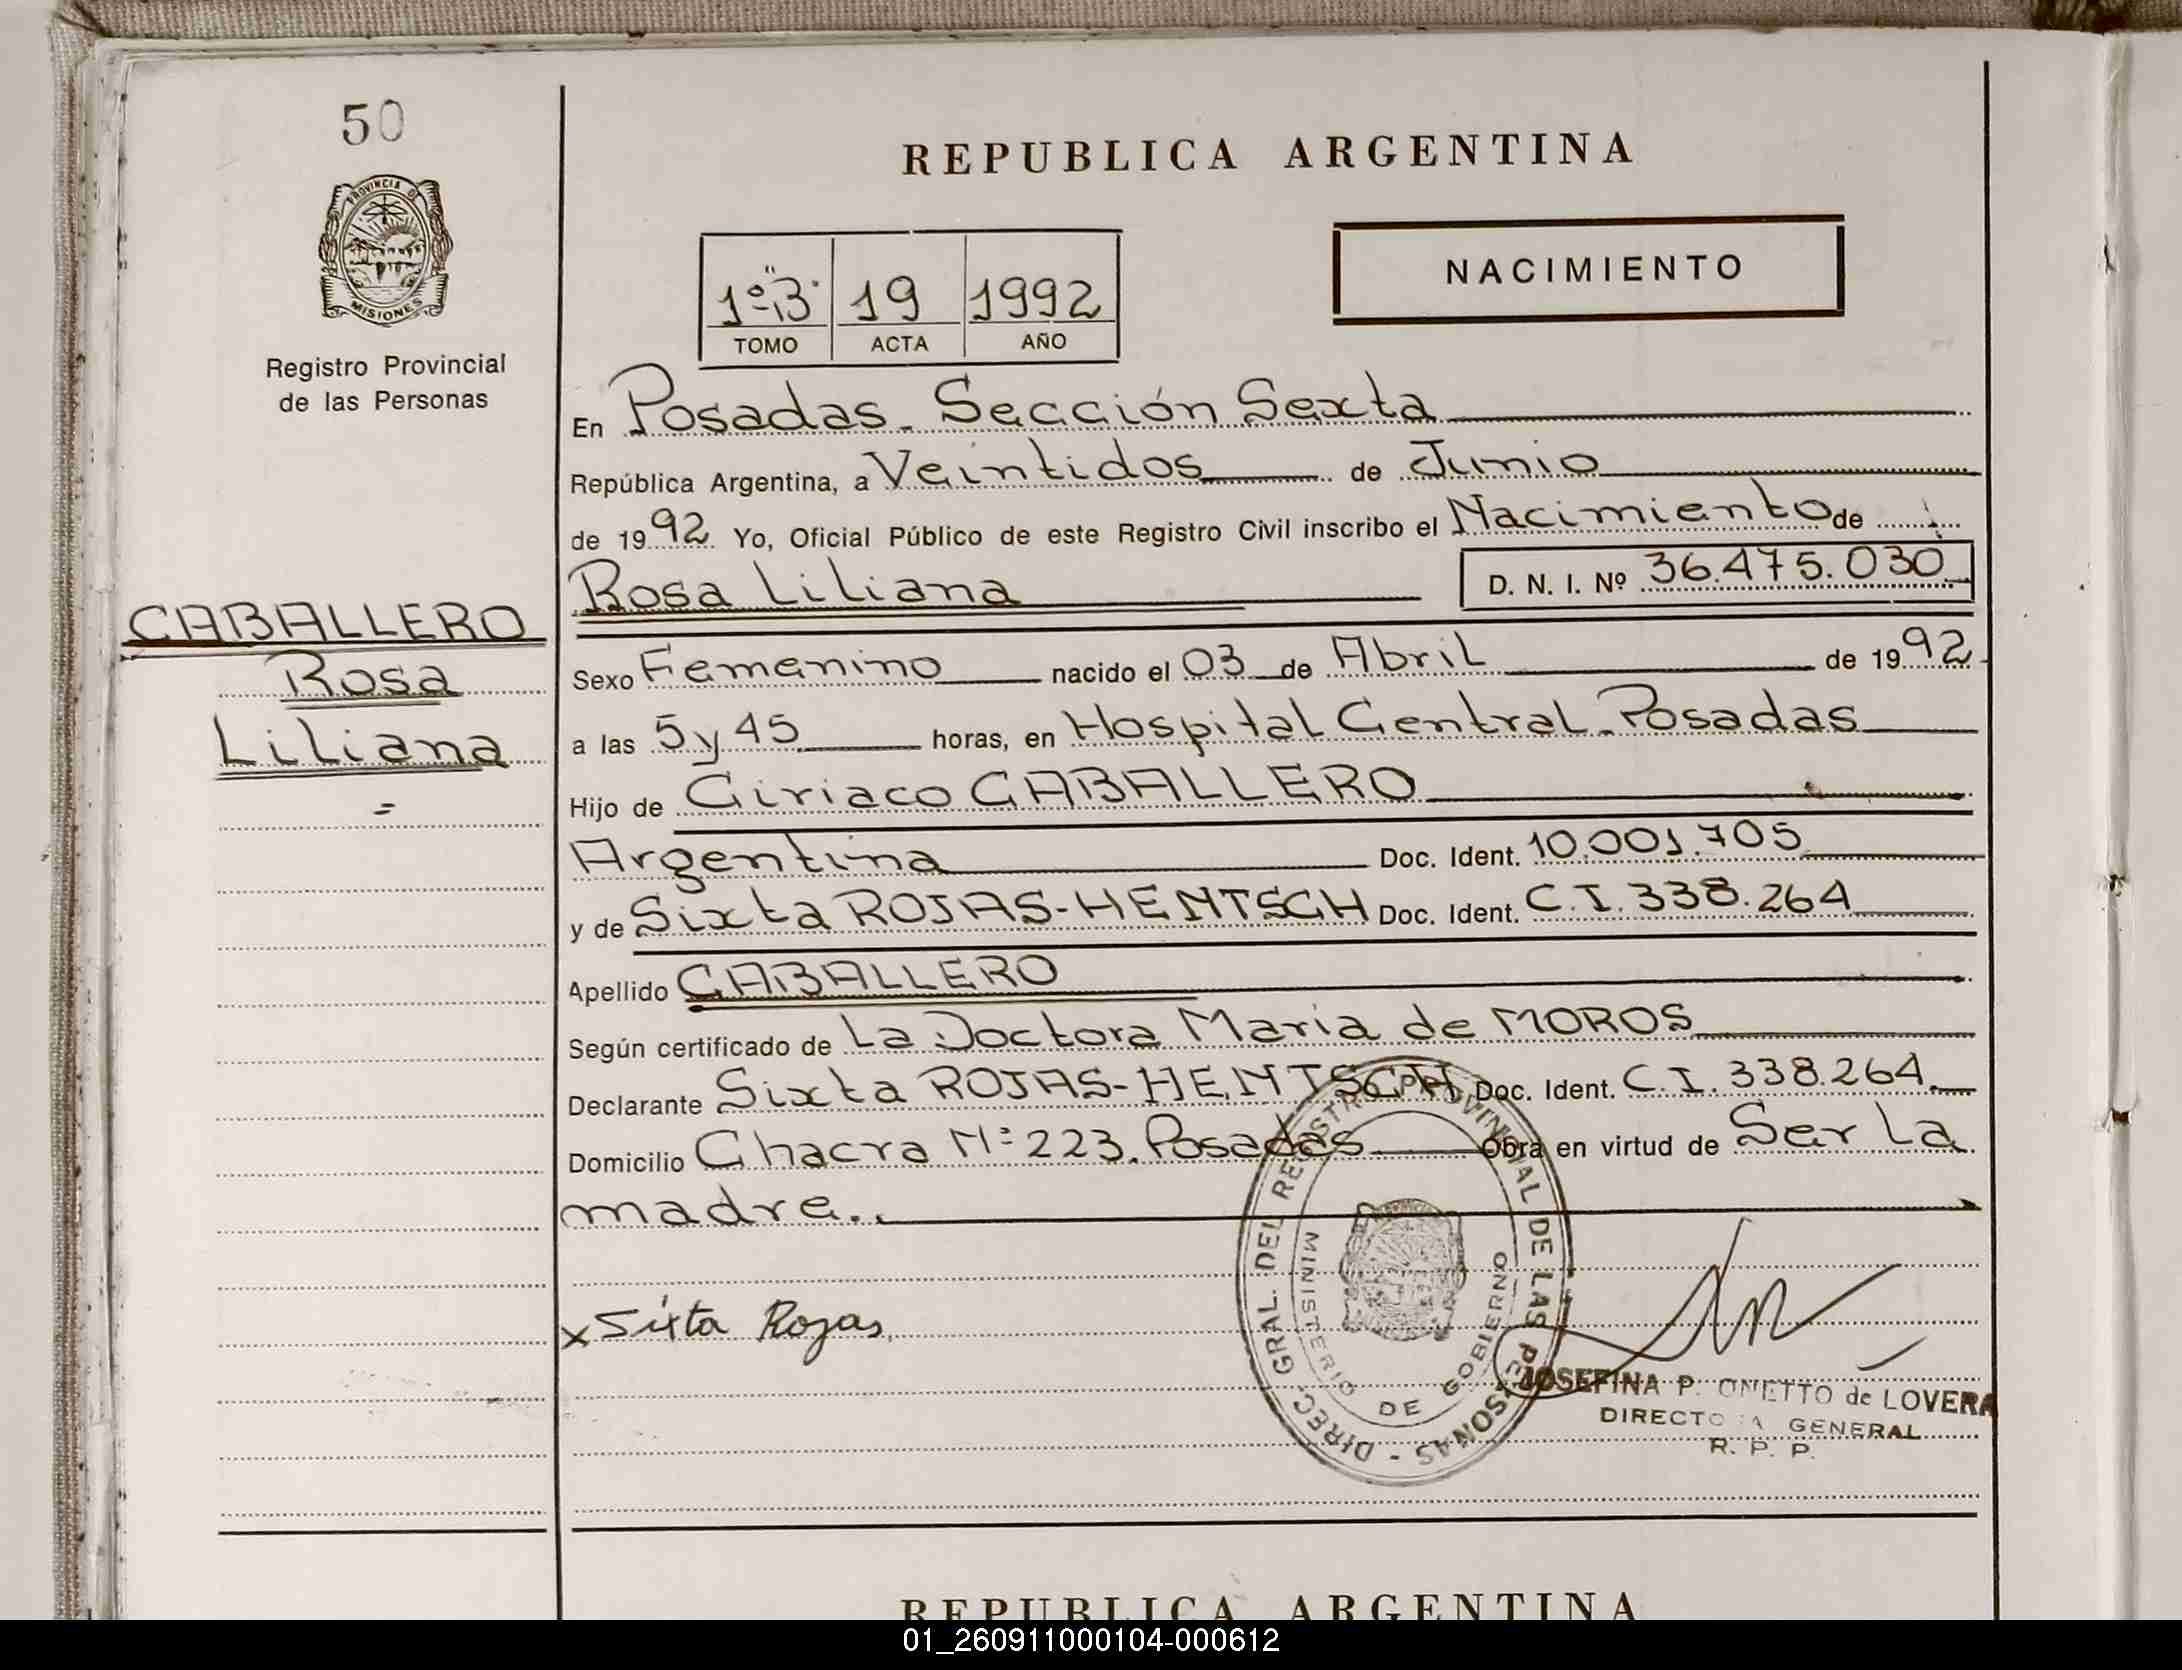 50
PROVINCIA D
MISIONES
Registro Provincial
de las Personas
CABALLERO
Rosa
Liliana
=
REPUBLICA ARGENTINA
1º "B" 19 1992
TOMO ACTA AÑO
NACIMIENTO
En Posadas. Sección Sexta
República Argentina, a Veintidos de Junio
de 1992 Yo, Oficial Público de este Registro Civil inscribo el Nacimiento de
Rosa Liliana D. N. I. Nº 36.475.030
Sexo Femenino nacido el 03 de Abril de 1992
a las 5 y 45 horas, en Hospital Central. Posadas
Hijo de Ciriaco CABALLERO
Argentina Doc. Ident. 10.001.705
y de Sixta ROJAS-HENTSCH Doc. Ident. C.I. 338.264
Apellido CABALLERO
Según certificado de La Doctora Maria de MOROS
Declarante Sixta ROJAS-HENTSCH Doc. Ident. C.I. 338.264.
Domicilio Chacra Nº 223. Posadas Obra en virtud de Ser La
madre..
DIREC. GRAL. DEL REGISTRO PROVINCIAL DE LAS PERSONAS -
MINISTERIO DE GOBIERNO
x Sixta Rojas
JOSEFINA P. ONETTO de LOVERA
DIRECTORA GENERAL
R. P. P.
REPUBLICA ARGENTINA
01_260911000104-000612